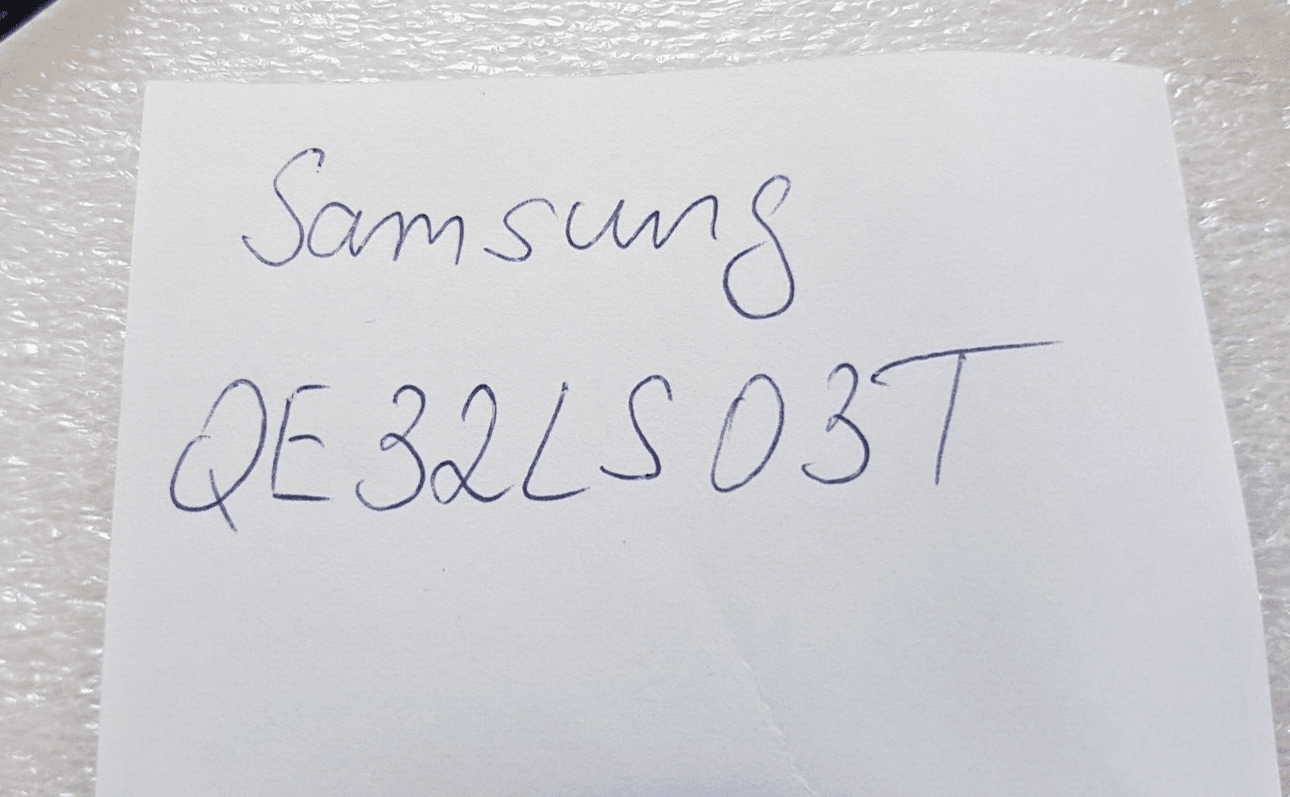 Samsung
QE32LS03T